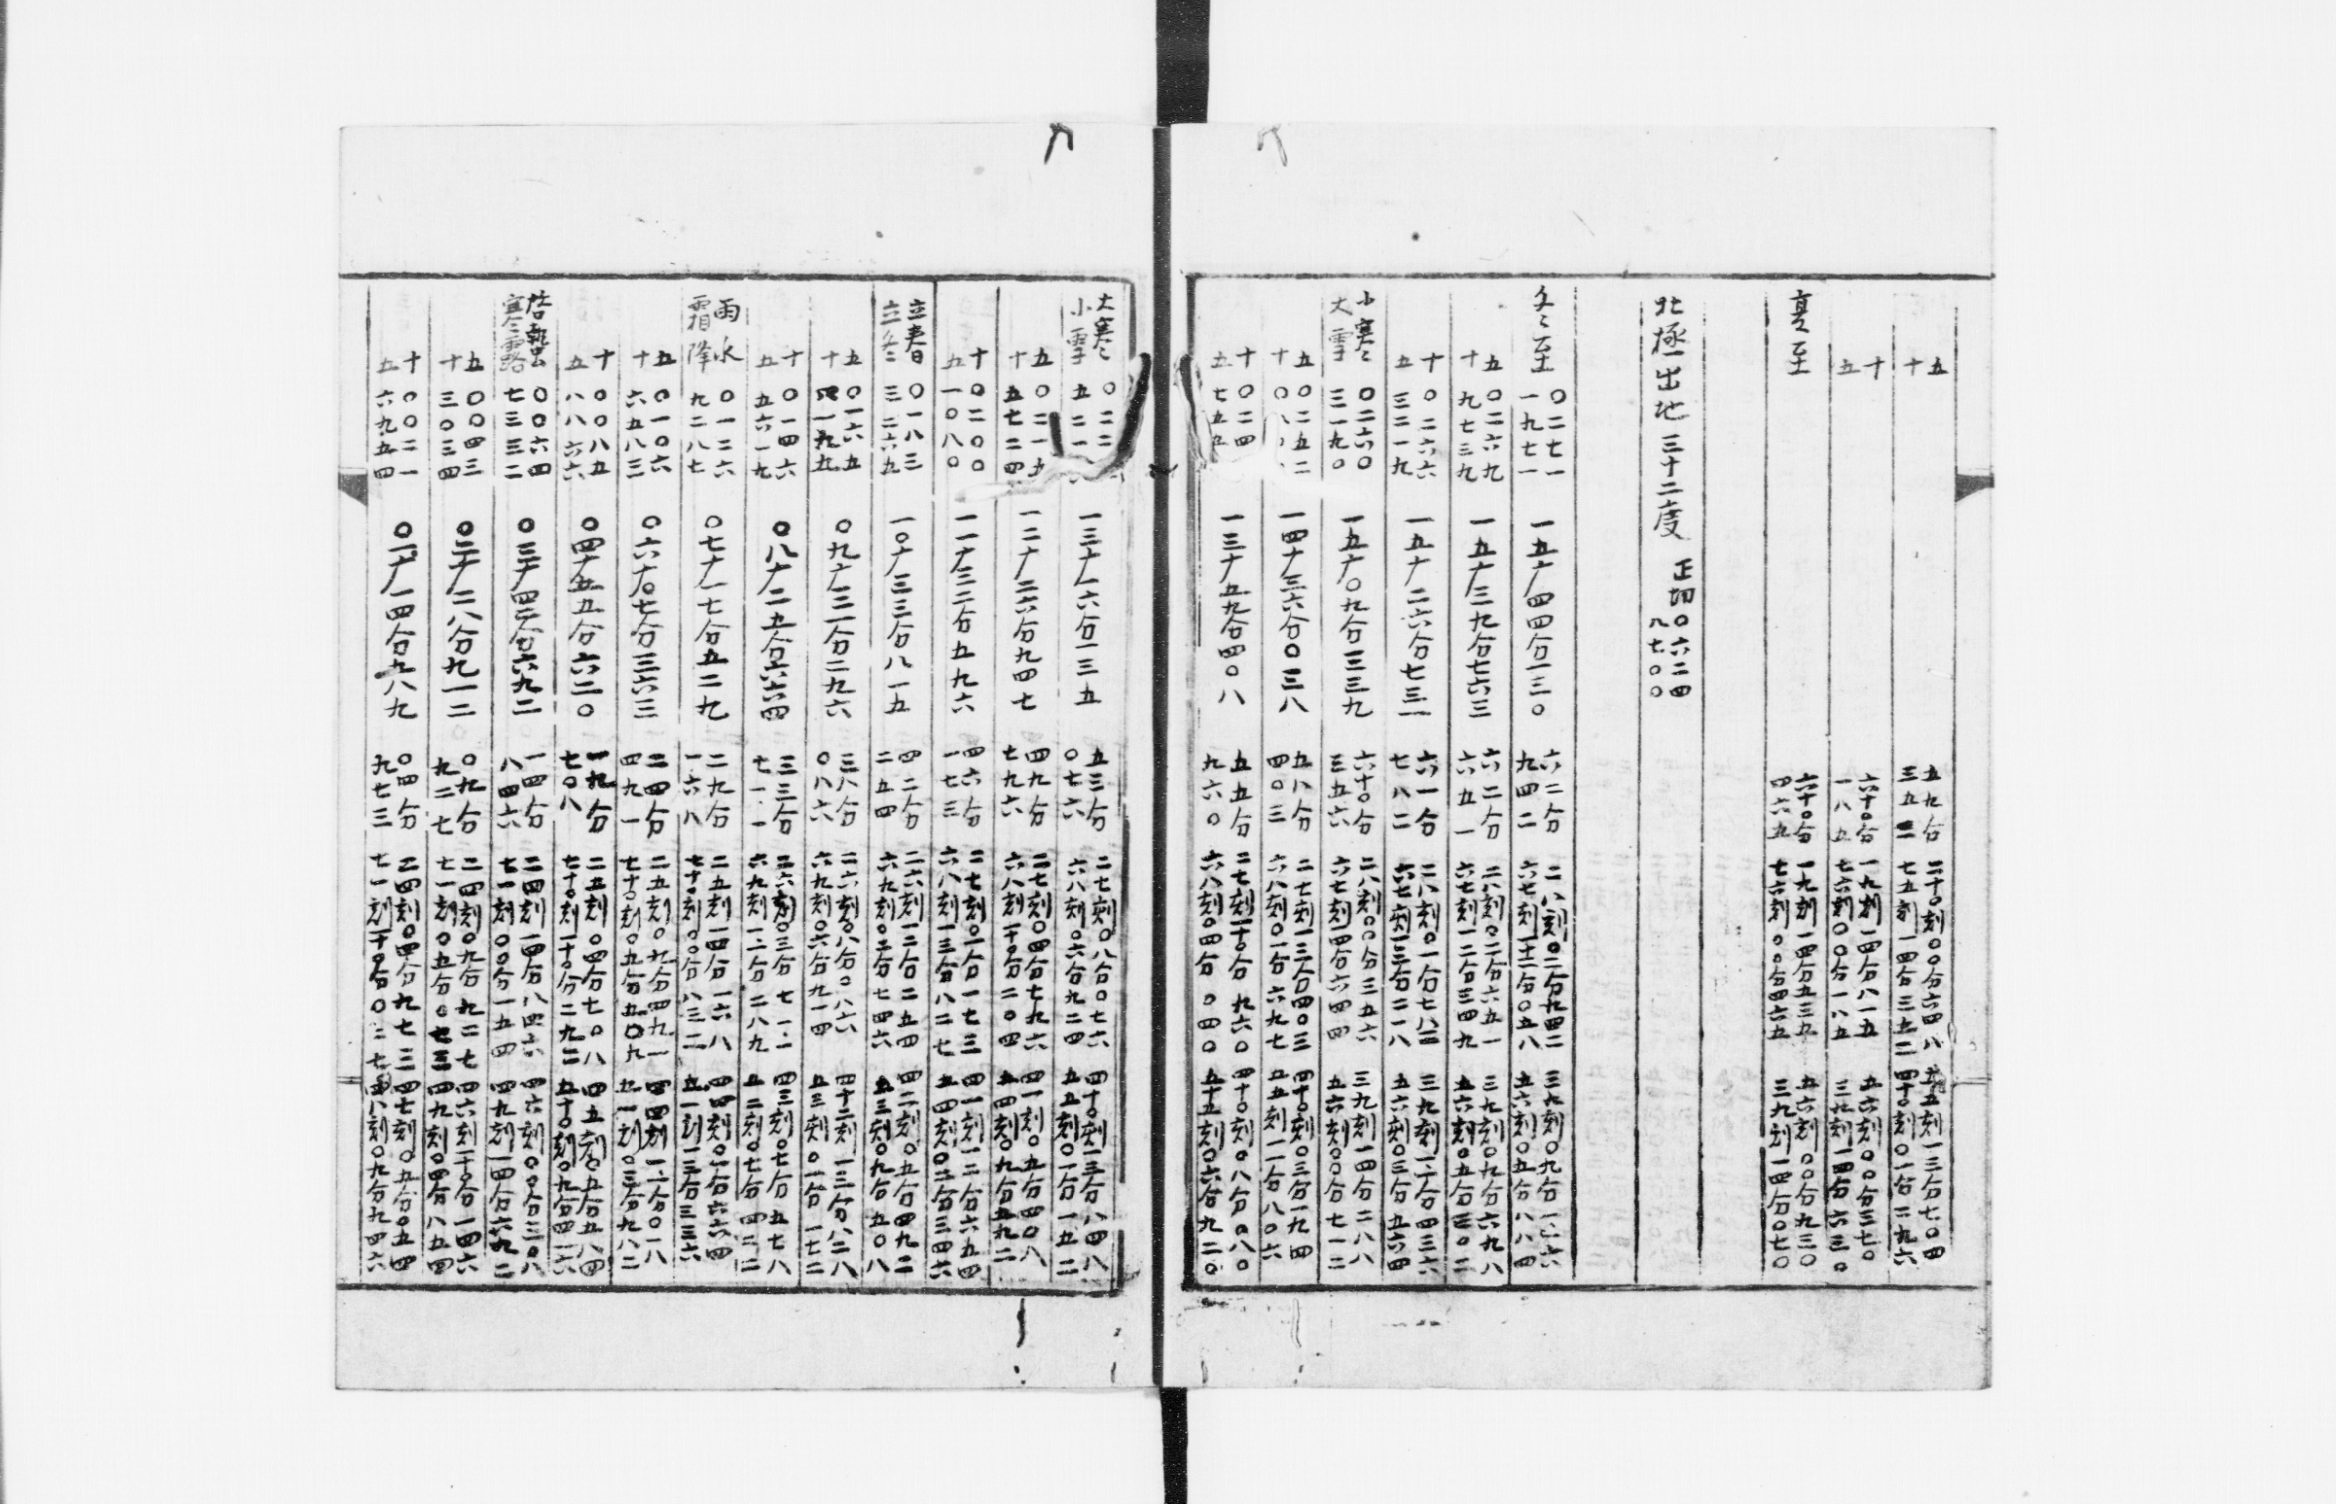 五十　五九分三五二　二十〇刻〇〇分六四八　七五刻一四分三五二　五五刻一三分七〇四　四十〇刻〇一分二九六
十五　六十〇分一八五　一九刻一四分八一五　七六刻〇〇分一八五　五六刻〇〇分三七〇　三九刻一四分六三〇
夏至　六十〇分四六五　一九刻一四分五三五　七六刻〇〇分四六五　五六刻〇〇分九三〇　三九刻一四分〇七〇
北極出地三十二度　正切〇六二四八七〇〇
冬至　〇二七一一九七一　一五度四四分一三〇　六二分九四二　二八刻〇二分九四二　六七刻一十二分〇五八　三九刻〇九分一一六　五六刻〇五分八八四
五十　〇二六九九七三九　一五度三九分七六三　六二分六五一　二八刻〇二分六五一　六七刻一二分三四九　三九刻〇九分六九八　五六刻〇五分三〇二
十五　〇二六六三三一九　一五度二六分七三一　六一分七八二　二八刻〇一分七八二　六七刻一三分二一八　三九刻一一分四三六　五六刻〇三分五六四
小寒大雪　〇二六〇三一九〇　一五度〇九分三三九　六十〇分三五六　二八刻〇〇分三五六　六七刻一四分六四四　三九刻一四分二八八　五六刻〇〇分七一二
五十　〇二五二〇八　一四度三六分〇三八　五八分四〇三　二七刻一三分四〇三　六八刻〇一分六九七　四十〇刻〇三分一九四　五五刻一一分八〇六
十五　〇二四七五五　一三度五九分四〇八　五五分九六〇　二七刻一十〇分九六〇　六八刻〇四分〇四〇　四十〇刻〇八分〇八〇　五十五刻〇六分九二〇
大寒小雪　〇二二五二一　一三度一六分一三五　五三分〇七六　二七刻〇八分〇七六　六八刻〇六分九二四　四十〇刻一三分八四八　五五刻〇一分一五二
五十　〇二一九五七二四　一二度二六分九四七　四九分七九六　二七刻〇四分七九六　六八刻一十〇分二〇四　四一刻〇五分四〇八　五四刻〇九分五九二
十五　〇二〇〇一〇八〇　一一度三二分五九六　四六分一七三　二七刻〇一分一七三　六八刻一三分八二七　四一刻一二分六五四　五四刻〇二分三四六
立春立冬　〇一八三三二六九　一〇度三三分八一五　四二分二五四　二六刻一二分二五四　六九刻〇二分七四六　四二刻〇五分四九二　五三刻〇九分五〇八
五十　〇一六五四一九九　〇九度三一分二九六　三八分〇八六　二六刻〇八分〇八六　六九刻〇六分九一四　四十二刻一三分八二八　五三刻〇一分一七二
十五　〇一四六五六一九　〇八度二五分六六四　三三分七一一　二六刻〇三分七一一　六九刻一一分二八九　四三刻〇七分五七八　五二刻〇七分四二二
雨水霜降　〇一二六九二八七　〇七度一七分五二九　二九分一六八　二五刻一四分一六八　七十〇刻〇〇分八三二　四四刻〇一分六六四　五一刻一三分三三六
五十　〇一〇六六五八三　〇六度〇七分三六三　二四分四九一　二五刻〇九分四九一　七十〇刻〇九分五〇九　四四刻一一分〇一八　五一刻〇三分九八二
十五　〇〇八五八八六六　〇四度五五分六二〇　一九分七〇八　二五刻〇四分七〇八　七十〇刻一十〇分二九二　四五刻〇五分五八四　五十〇刻〇九分四一六
啓蟄寒露　〇〇六四七三三二　〇三度四二分六九二　一四分八四六　二四刻一四分八四六　七一刻〇〇分一五四　四六刻〇〇分三〇八　四九刻一四分六九二
五十　〇〇四三三〇三四　〇二度二八分九一二　〇九分九二七　二四刻〇九分九二七　七一刻〇五分〇七三　四六刻一十〇分一四六　四九刻〇四分八五四
十五　〇〇二一六九五四　〇一度一四分九八九　〇四分九七三　二四刻〇四分九七三　七一刻一十〇分〇二七　四七刻〇五分〇五四　四八刻〇九分九四六